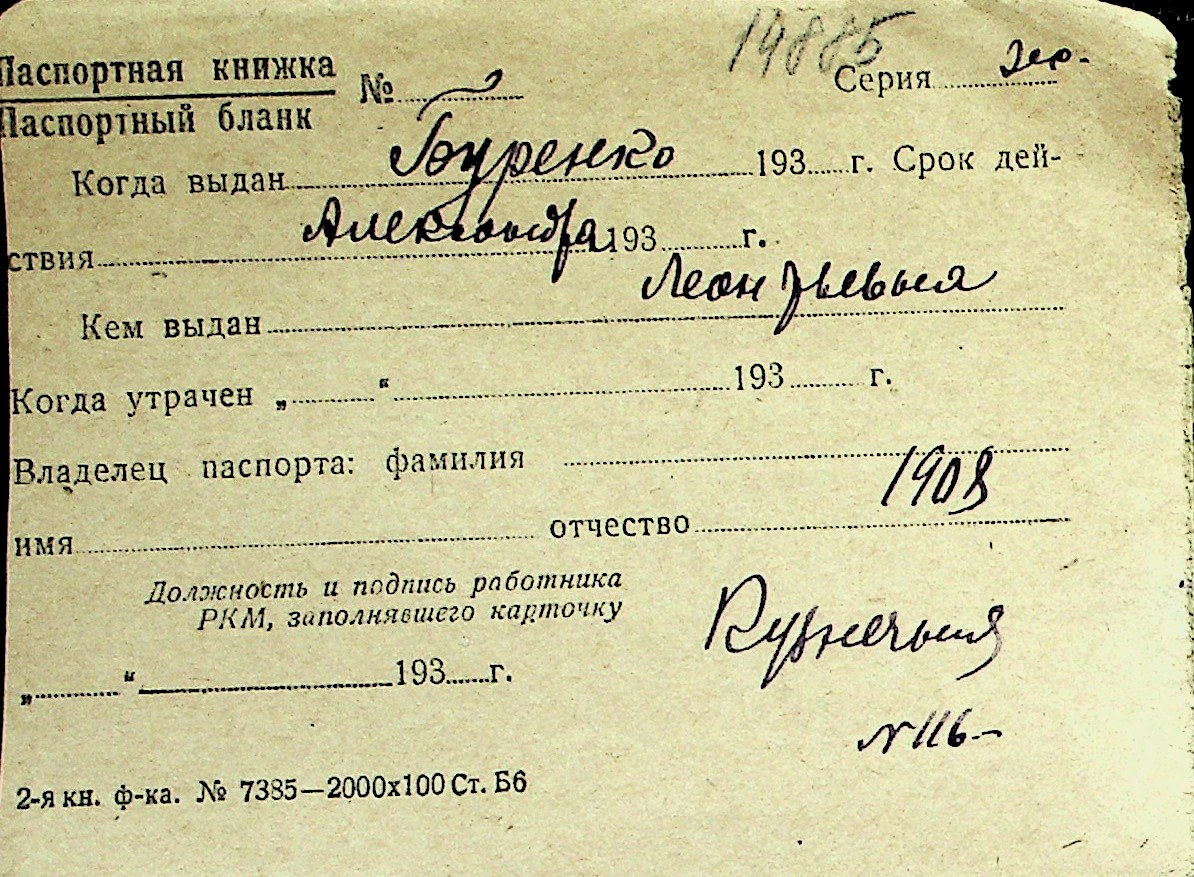 19885
Паспортная книжка
Паспортный бланк
№ Серия
Буренко
Когда выдан 193 г. Срок дей-
Александра
ствия 193 г.
Леонтьевна
Кем выдан
Когда утрачен „ “ 193 г.
Владелец паспорта: фамилия
1908
имя отчество
Должность и подпись работника
РКМ, заполнявшего карточку
„ “ 193 г.
№ 116-
2-я кн. ф-ка. № 7385—2000х100 Ст. Б6